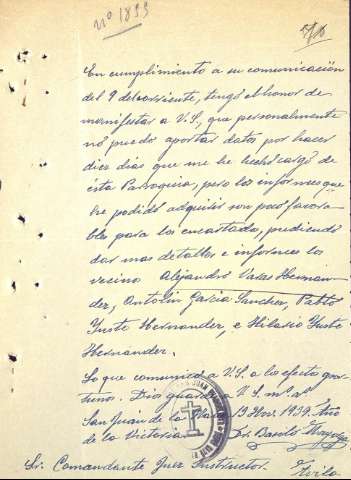 nº 1899
En cumplimiento a su comunicación
del 9 del corriente, tengo el honor de
manifestar a V.S., que personalmente
no puedo aportar datos por hacer
diez dias que me he hecho cargo de
ésta Parroquia, pero los informes que
he podido adquirir son poco favora-
bles para los encartados, pudiendo
dar mas detalles e informes los
vecinos Alejandro Varas Hernan-
dez, Antolin Garcia Sanchez, Pablo
Yuste Hernandez, e Hilario Yuste
Hernandez.
Lo que comunico a V.S. a los efectos opor-
tunos. Dios guarde a V.S. m. a.
San Juan de la 13 Nov. 1939. Año
de la Victoria. Basilio
Sr. Comandante Juez Instructor. Avila